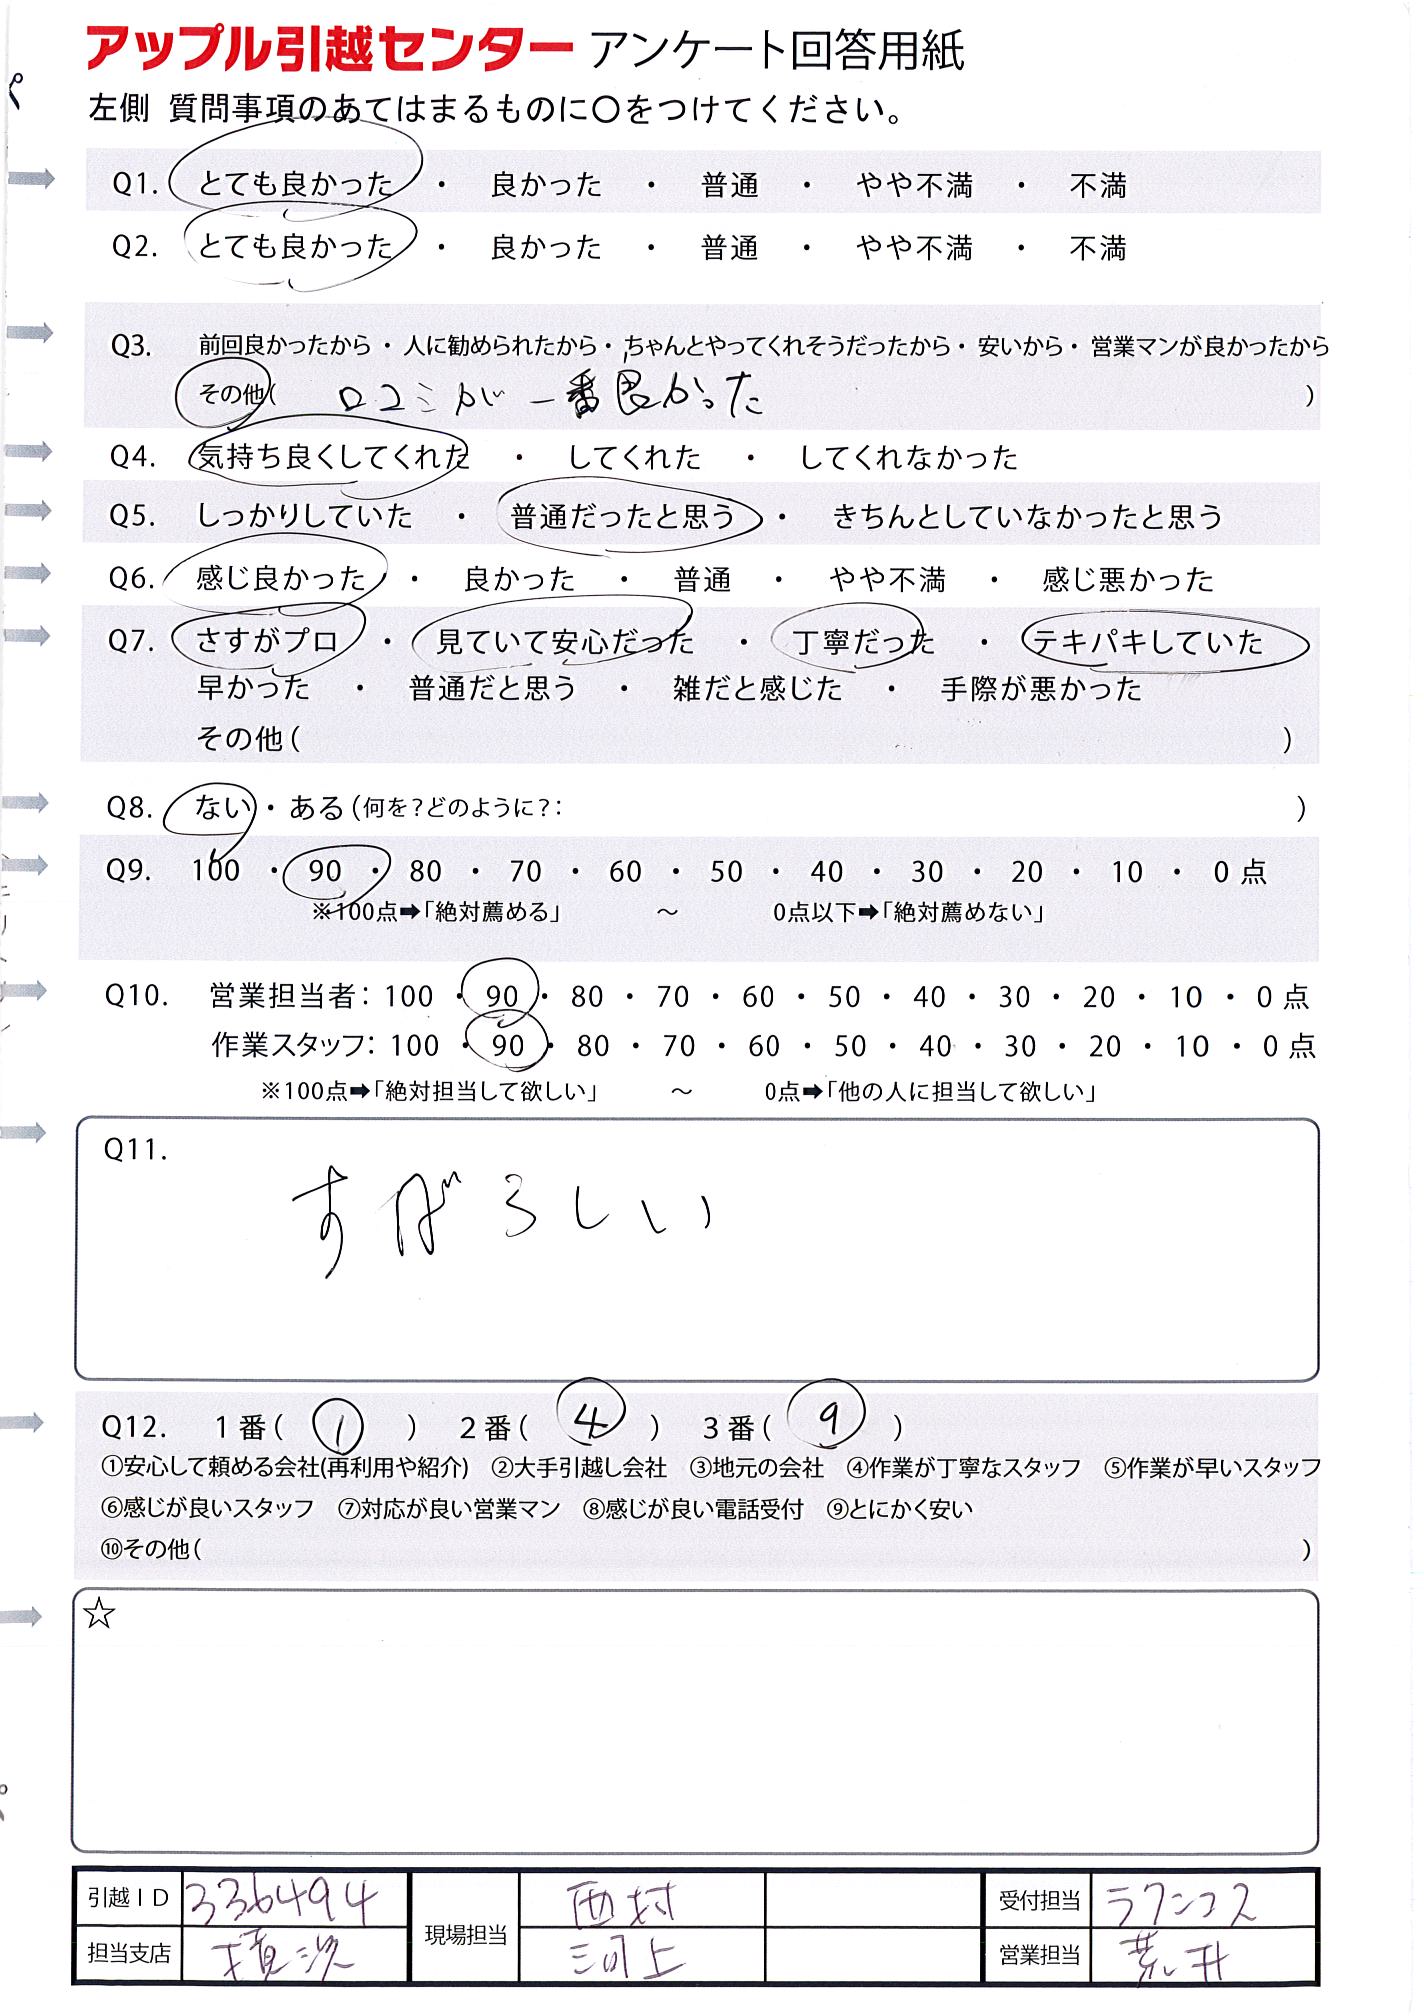 アップル引越センター アンケート回答用紙
左側 質問事項のあてはまるものに〇をつけてください。
Q1. とても良かった ・ 良かった ・ 普通 ・ やや不満 ・ 不満
Q2. とても良かった ・ 良かった ・ 普通 ・ やや不満 ・ 不満
Q3. 前回良かったから・人に勧められたから・ちゃんとやってくれそうだったから・安いから・営業マンが良かったから
その他( 口コミが一番良かった )
Q4. 気持ち良くしてくれた ・ してくれた ・ してくれなかった
Q5. しっかりしていた ・ 普通だったと思う ・ きちんとしていなかったと思う
Q6. 感じ良かった ・ 良かった ・ 普通 ・ やや不満 ・ 感じ悪かった
Q7. さすがプロ ・ 見ていて安心だった ・ 丁寧だった ・ テキパキしていた
早かった ・ 普通だと思う ・ 雑だと感じた ・ 手際が悪かった
その他( )
Q8. ない・ある(何を?どのように?: )
Q9. 100 ・ 90 ・ 80 ・ 70 ・ 60 ・ 50 ・ 40 ・ 30 ・ 20 ・ 10 ・ 0点
※100点➡「絶対薦める」 ～ 0点以下➡「絶対薦めない」
Q10. 営業担当者: 100 ・ 90 ・ 80 ・ 70 ・ 60 ・ 50 ・ 40 ・ 30 ・ 20 ・ 10 ・ 0点
作業スタッフ: 100 ・ 90 ・ 80 ・ 70 ・ 60 ・ 50 ・ 40 ・ 30 ・ 20 ・ 10 ・ 0点
※100点➡「絶対担当して欲しい」 ～ 0点➡「他の人に担当して欲しい」
Q11.
すばらしい
Q12. 1番( 1 ) 2番( 4 ) 3番( 9 )
①安心して頼める会社(再利用や紹介) ②大手引越し会社 ③地元の会社 ④作業が丁寧なスタッフ ⑤作業が早いスタッフ
⑥感じが良いスタッフ ⑦対応が良い営業マン ⑧感じが良い電話受付 ⑨とにかく安い
⑩その他( )
☆
引越ID 336494 現場担当 西村 受付担当 ラクンコス
担当支店 横浜 三河上 営業担当 荒井